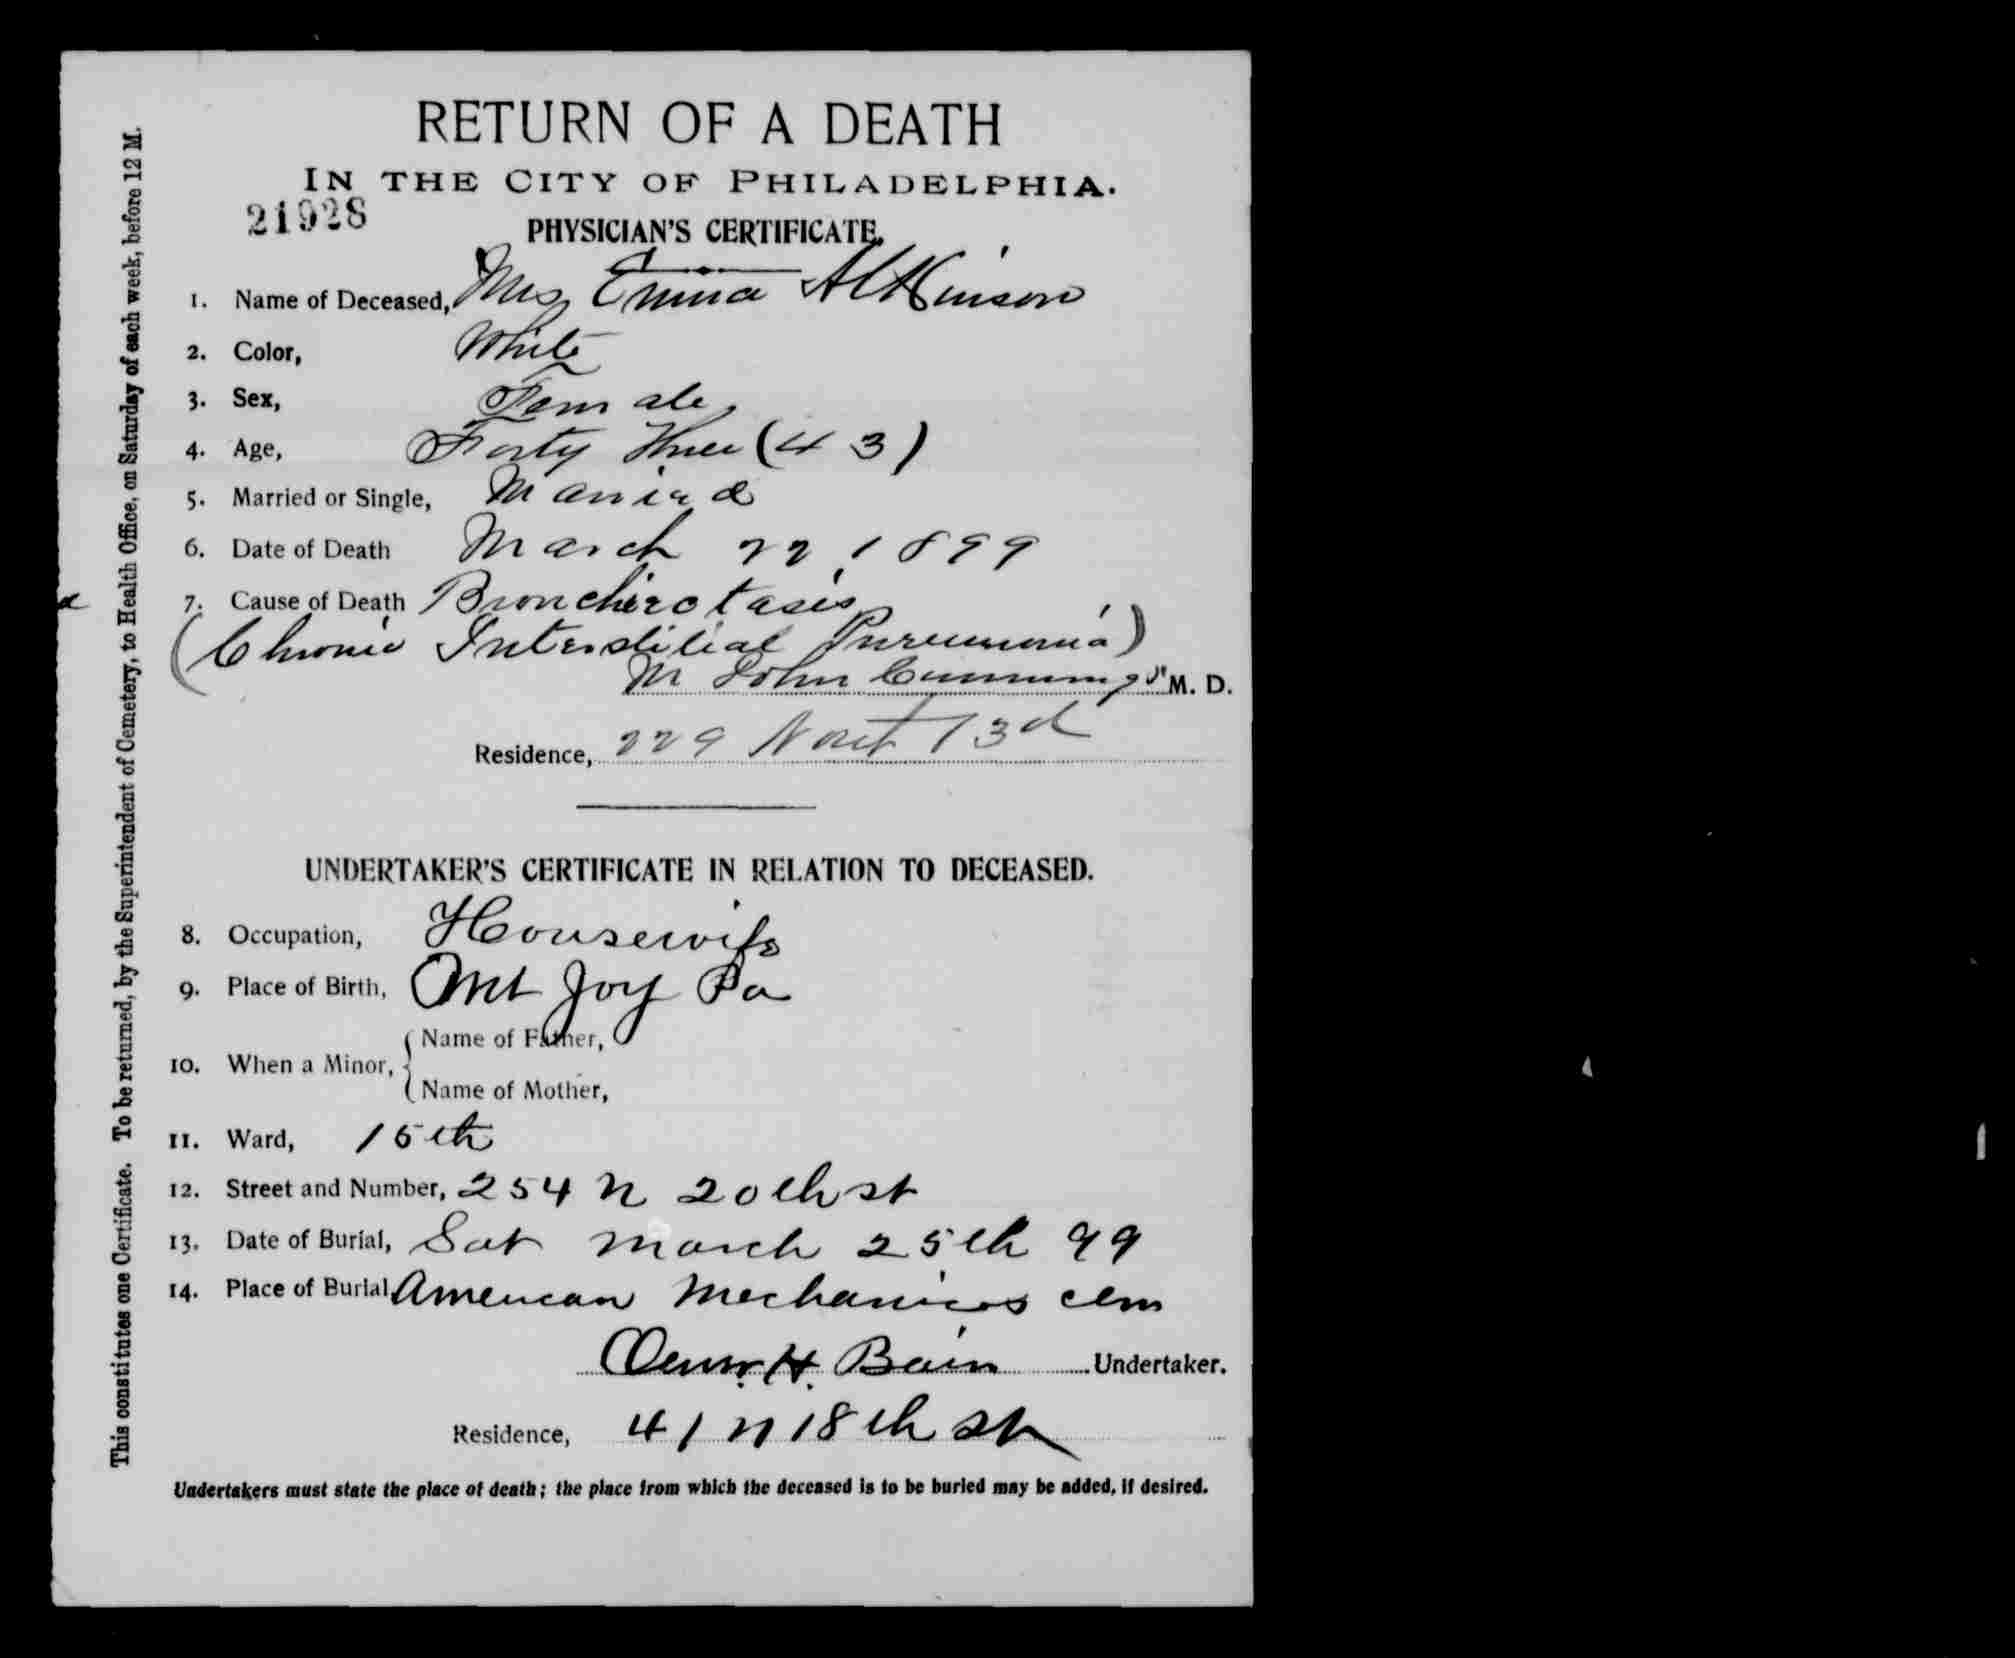 RETURN OF A DEATH
IN THE CITY OF PHILADELPHIA.
21928
PHYSICIAN'S CERTIFICATE.
1. Name of Deceased, Mrs Emma Atkinson
2. Color, White
3. Sex, Female
4. Age, Forty Three (43)
5. Married or Single, Married
6. Date of Death March 22, 1899
7. Cause of Death Bronchiectasis
(Chronic Interstitial Pneumonia)
M John Cummings M. D.
Residence, 229 North 3d
UNDERTAKER'S CERTIFICATE IN RELATION TO DECEASED.
8. Occupation, Housewife
9. Place of Birth, Mt Joy Pa
10. When a Minor, { Name of Father,
Name of Mother,
11. Ward, 15th
12. Street and Number, 254 N 20th st
13. Date of Burial, Sat March 25th 99
14. Place of Burial, American Mechanics cem
H. Bain Undertaker.
Residence, 41 N 18th st
Undertakers must state the place of death; the place from which the deceased is to be buried may be added, if desired.
This constitutes one Certificate. To be returned, by the Superintendent of Cemetery, to Health Office, on Saturday of each week, before 12 M.